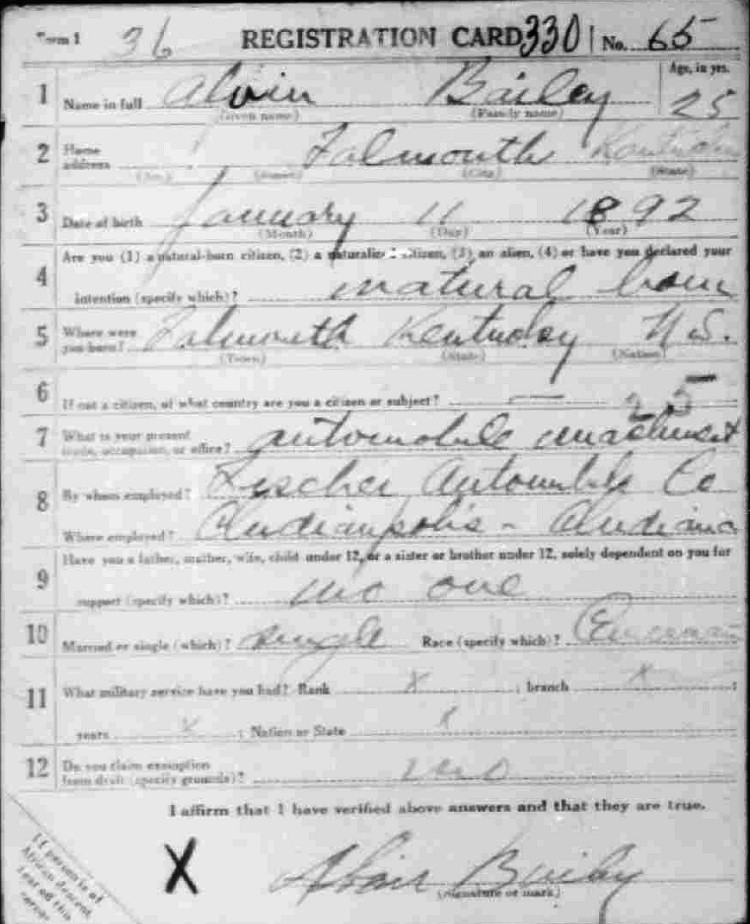 Form 1 36 REGISTRATION CARD 330 No. 65
1 Name in full Alvin Bailey Age, in yrs. 25
(Given name) (Family name)
2 Home address Falmouth Kentucky
(No.) (Street) (City) (State)
3 Date of birth January 11 1892
(Month) (Day) (Year)
4 Are you (1) a natural-born citizen, (2) a naturalized citizen, (3) an alien, (4) or have you declared your
intention (specify which)? natural born
5 Where were you born? Falmouth Kentucky U.S.
(Town) (State) (Nation)
6 If not a citizen, of what country are you a citizen or subject? — 25
7 What is your present trade, occupation, or office? automobile machinest
8 By whom employed? Fischer Automble Co
Where employed? Indianpolis - Indiana
9 Have you a father, mother, wife, child under 12, or a sister or brother under 12, solely dependent on you for
support (specify which)? no one
10 Married or single (which)? single Race (specify which)?
11 What military service have you had? Rank x ; branch x ;
years x ; Nation or State x
12 Do you claim exemption from draft (specify grounds)? no
I affirm that I have verified above answers and that they are true.
X Alvin Bailey
(Signature or mark)
If person is of
African descent
tear off this
corner